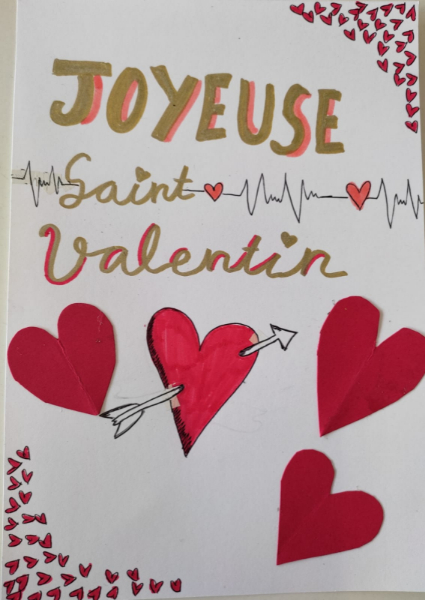 JOYEUSE
Saint
Valentin